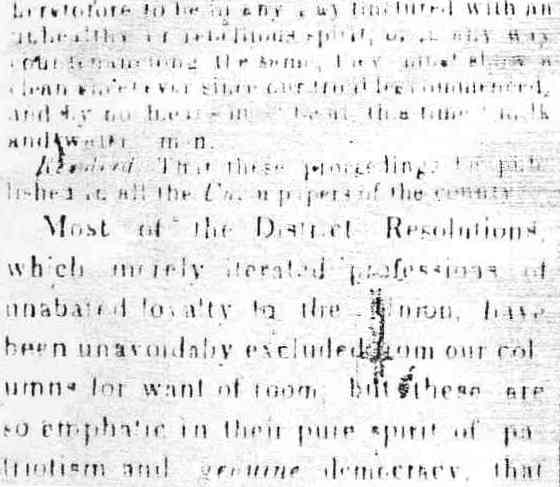 heretofore to be in any way tinctured with an
unhealthy or rebellious spirit, or in any way
countenancing the same, they must show a
clean  ever since our troubles commenced,
and by no means in  this time milk
and water men.
Resolved, That these proceedings be pub
lished in all the Union papers of the county
Most of the District Resolutions,
which merely iterated professions of
unabated loyalty to the Union, have
been unavoidaby excluded from our col
umns for want of room; but these are
so emphatic in their pure spirit of pa
triotism and genuine democracy, that